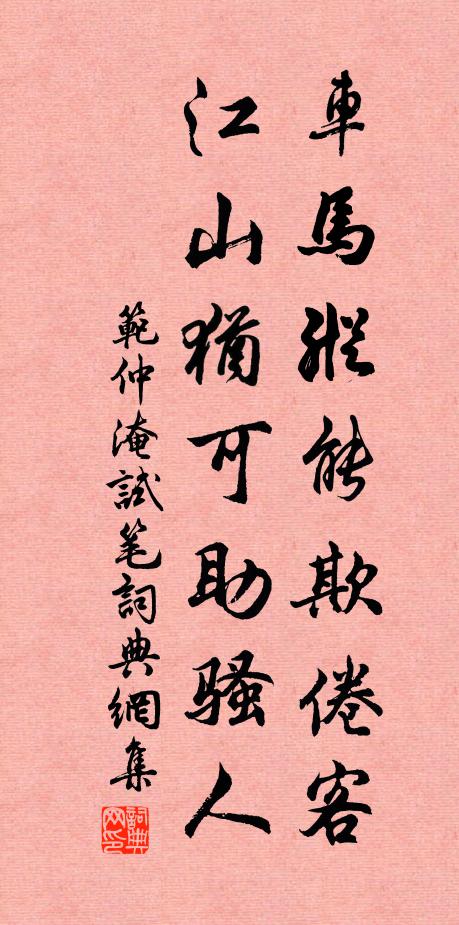 車馬縱能欺倦客
江山猶可助騷人
範仲淹試笔詞典網集
詞典
网印